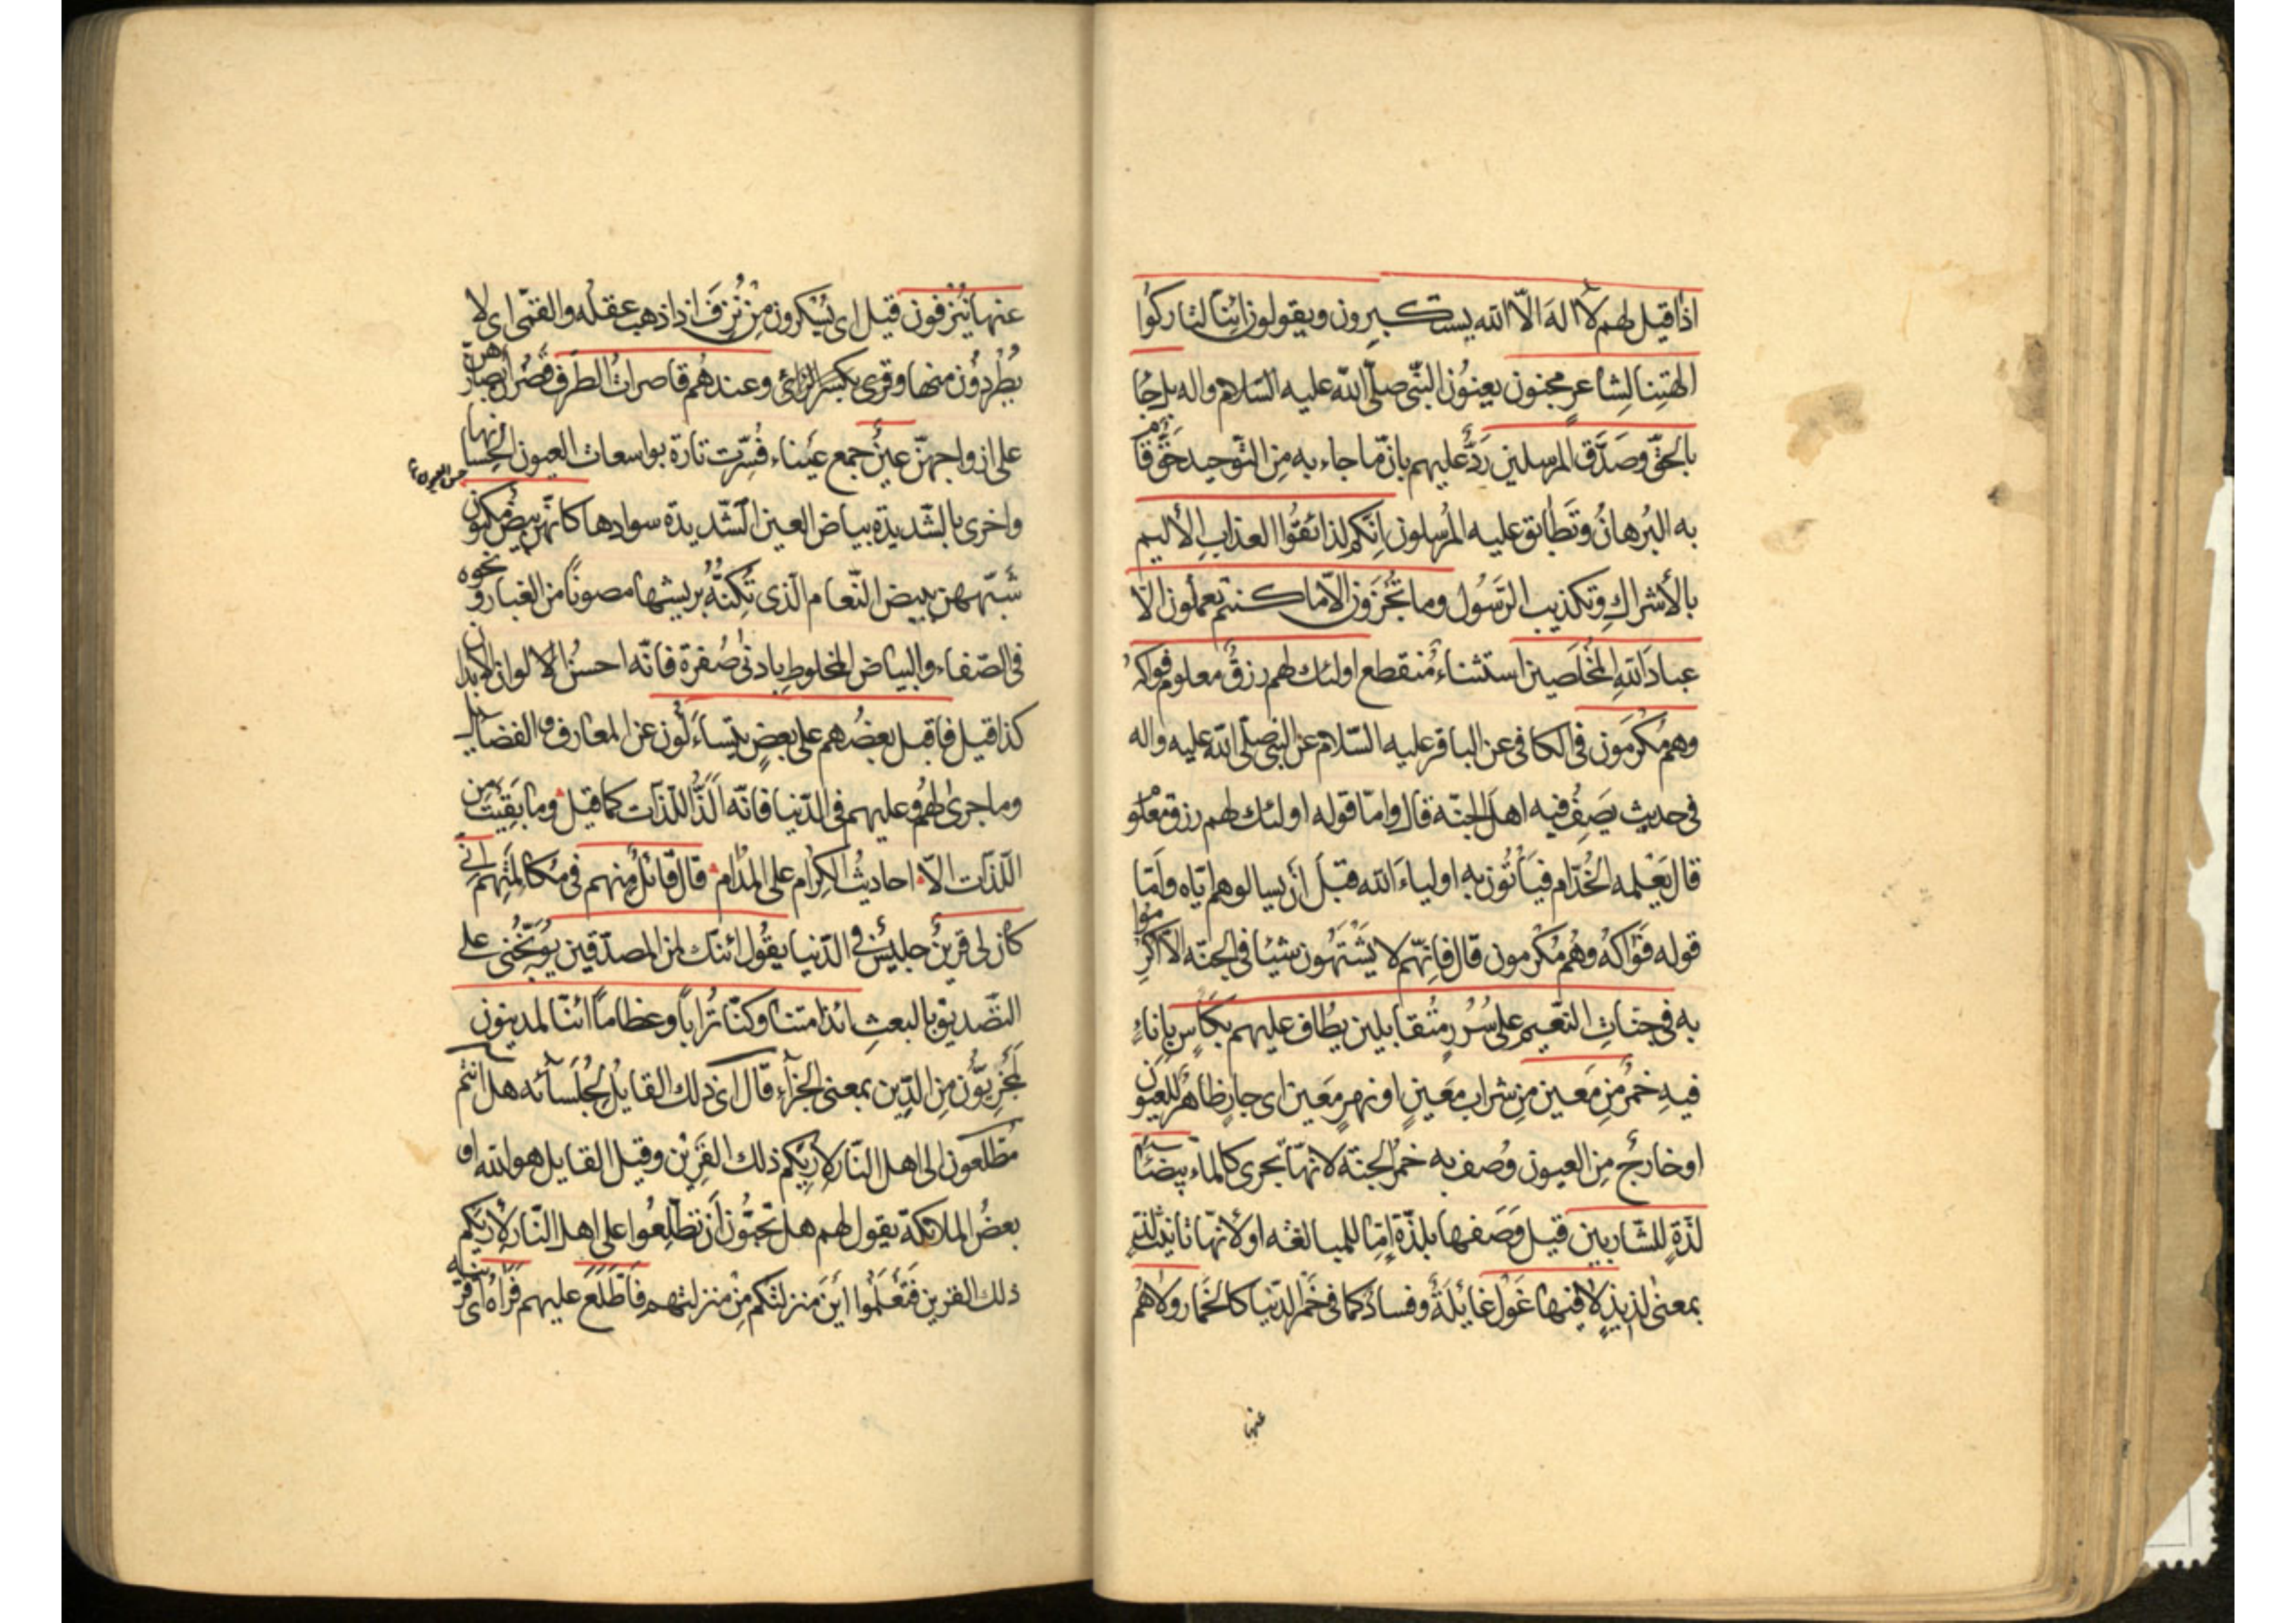 اذا قيل لهم لا اله الّا الله يستكبرون ويقولون ائنّا لتاركوُا
الهتِنا لِشاعرٍ مجنون يعنوُن النبّى صلّى الله عليه السّلام واله بل جُا
بالحقّ وصَدَّق المرسلين رَدٌّ عليهم بانّ ما جاء به مِن التّوحيد حَقّ قا
به البُرهانُ وتَطٰابق عليه المُرسلون اِنّكم لذائقوُا العذابِ الأليم
بالأشراكِ وتكذيب الرّسُول وما تُجزَون الّا ما كنتم تعملون الّا
عبادَ اللهِ المُخلَصين استثناء مُنقطع اولئك لهم رزقٌ معلوم فواكهُ
وهم مُكْرمَون فى الكافى عن الباقر عليه السّلام عن النبى صلّى الله عليه واله
فى حديث يَصِفُ فيه اهل الجنّة قال وامّا قوله اولئك لهم رزق معلوم
قال يَعْلمه الخُدّام فَيأتُون به اولياءَ الله قبْلَ اَن يسالوهم ايّاه وَامّا
قوله فَوٰاكهُ وهُم مُكْرمون قال فاِنّهم لا يَشْتَهون شيئا فى الجنّه الّا اكرِموا
به فى جنّاتِ النّعيم على سُرُرٍ مُتقابلين يُطاف عليهم بكَأسٍ باِناءٍ
فيهِ خمرٌ مِن مَعين مِن شراب مَعينٍ او نهرٍ مَعين اى جارٍ ظاهرٍ للعيون
او خارجٌ مِن العيون وُصف به خمرُ الجنّة لانهّا تجرى كالماء بيضٰاء
لذّةٍ للشّاربين قيل وَصَفها بلذّة اِمّا للمبالغه او لأنهّا تانيث لذٍّ
بمعنى لذيذٍ لا فيها غَوْل غائِلَةٌ وفسادٌ كما فى خَمْر الدّنيا كالخُمار ولاهُم
عنها
عنها يُنْزفون قيل اى يُسْكرون مِنْ نُزِفَ اذا ذهب عقله والقمّى اى لا
يُطْرَدوُن منها وقرى بكسر الزّائ وعندهُم قاصراتُ الطّرف قَصْرنَ ابصارهنّ
على ازواجهنّ عينٌ جمع عَيْناء فُسِّرت تارة بواسعات العيون لحِسانها
واخرى بالشّديدة بياض العين الشّديدة سوادها كانّهنّ بيض مكنون
شَبّههن ببيض النّعام الّذى تَكِنّهُ بريشها مصونًا من الغبار ونحوه
فى الصّفاء والبياض المخلوطِ بادنى صُفرة فانّه احسنُ الالوان الابدان
كذا قيل فاقبل بعضُهم على بعضٍ يتساءَلُون عن المعارف والفضايل
وما جرىٰ لهُم وعليهم فى الدّنيا فانّه اَلَذُّ اللّذات كما قيل وما بَقِيَتْ من
اللّذّات الاّ احاديثُ الكِرٰام على المُدٰام قال قٰائلٌ منهم فى مكالمَتِهم انّى
كان لى قرينٌ جليسٌ فى الدّنيا يقُول ائنّك لمن المصدّقين يُوَبّخُنى على
التّصديق بالبعثِ ائذا متنا وكنّا تُراباً وعظاماً ائنّا لمدينون
لمجزيّون مِن الدّين بمعنى الجزاء قال اى ذلك القايل لجُلَسائه هل انتم
مُطّلعون الى اهل النّار لأريَكم ذلك القَرين وقيل القايل هو الله او
بعضُ الملائكة يقول لهم هل تحبّون اَن تطّلِعُوا على اهل النّار لأريَكم
ذلك القرين فَتَعْلَموُا اَينَ منزلتكم مِنْ منزلتهم فَاطّلَعَ عليهم فَرَاٰهُ اى قرينه